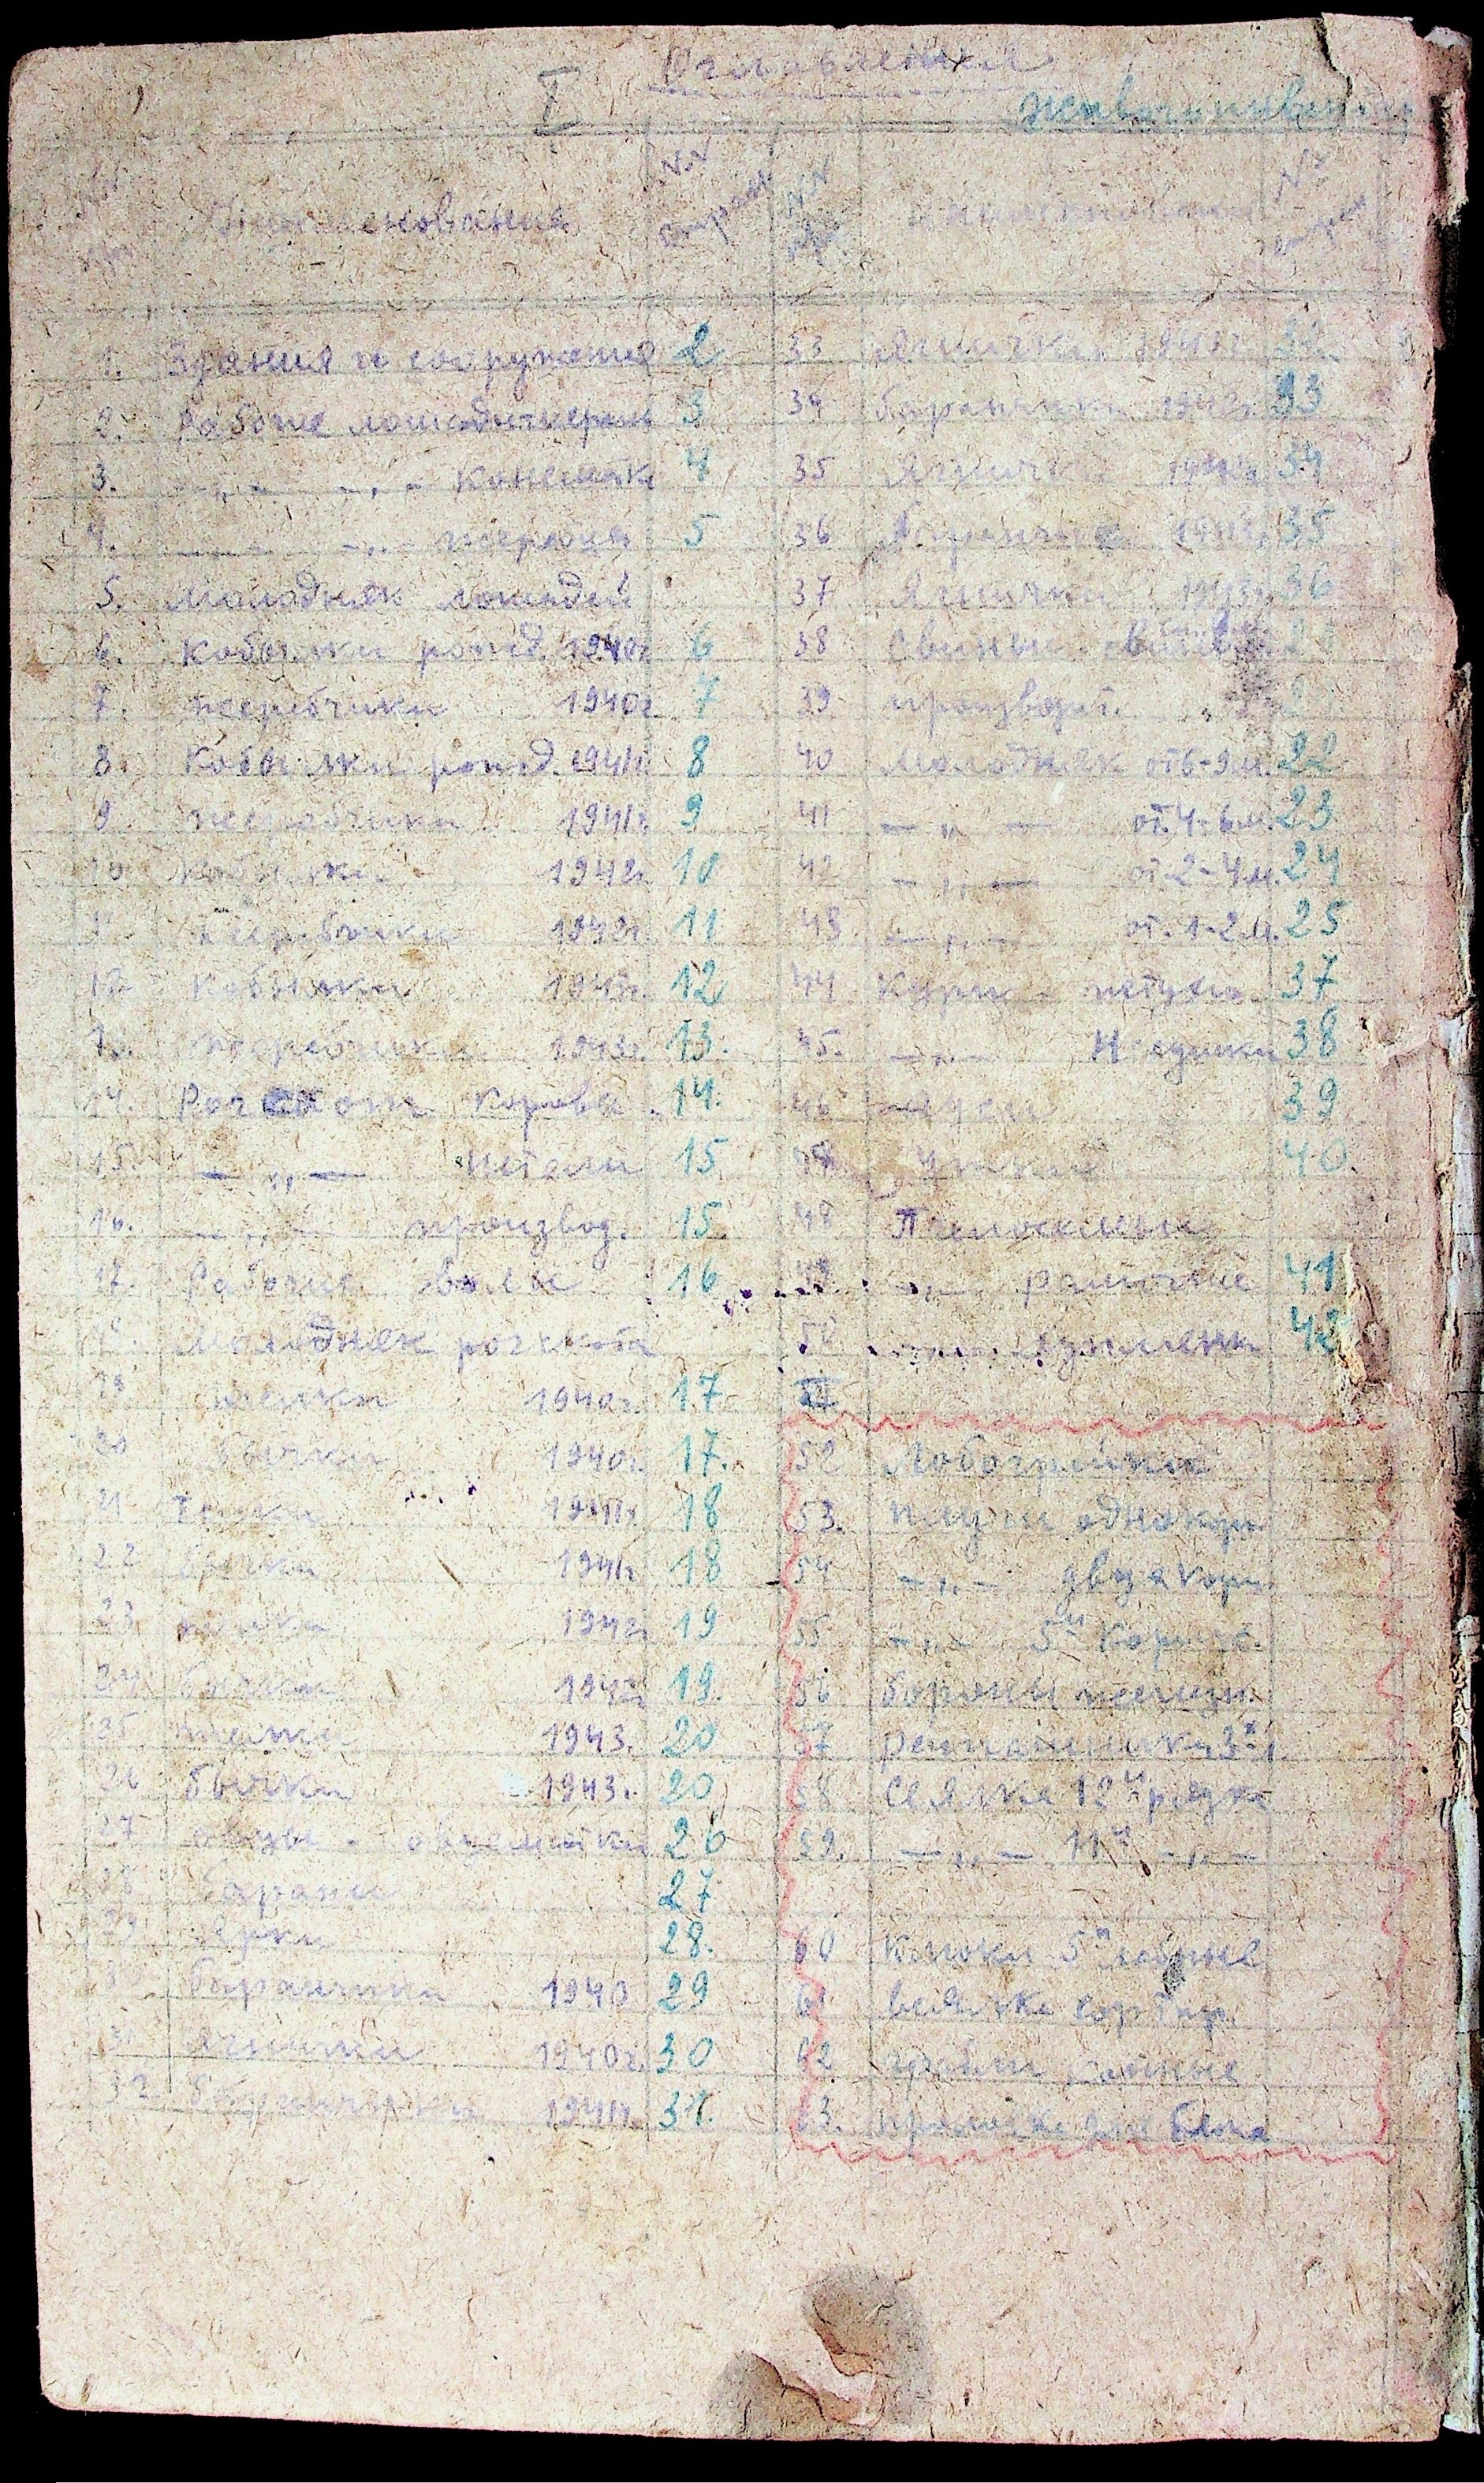 Оглавление
I
Наименования
NN
NN
1. Здания и сооружения 2
2. Рабочие лошади мерин 3
3. —„— —„— Конематк 4
4. —„— —„— жеребцы 5
5. Молодняк лошадей
6. Кобылки рожд. 1940г 6
7. жеребчики 1940г 7
8. Кобылки рожд. 1941г. 8
9 жеребчики 1941г. 9
10 Кобылки 1942г. 10
11 жеребчики 1942г. 11
12 Кобылки 1943г. 12
13. жеребчики 1943г. 13.
14. Рог скот Коровы 14.
15. —„— нетели 15
16. —„— производ. 15
17. Рабочие волы 16
18. Молодняк рог скота
19 телки 1940г. 17
20 бычки 1940г. 17.
21 телки 1941г. 18
22 бычки 1941г. 18
23 телки 1942г. 19
24 бычки 1942г. 19.
25 телки 1943. 20
26 бычки 1943. 20
27 овцы - овцематки 26
28 бараны 27
29 Ярки 28.
30 баранчики 1940 29
31 Ягнички 1940г. 30
32 баранчики 1941г. 31.
33 Ягнички 1941г. 32
34 баранчики 1942г. 33
35 Ягнички 1942г. 34
36 баранчики 1943г. 35
37 Ягнички 1943г. 36
38 Свиньи
39 производит.
40 Молодняк от 6-9 м. 22
41 —„— от. 4-6 м. 23
42 —„— от 2-4 м. 24
43 —„— от. 1-2 м. 25
44 Куры петухи 37
45. —„— Несушки 38
46 39
47 Утки 40
48 Пчелосемьи
49 —„— рамочные 41
50 —„— 42
II
52 Лобогрейка
53. плуги однокорп.
54 —„— двухкорп.
55 —„— 5и корпус.
56 бороны железн.
57
58 Сеялка 12и рядк
59. —„— 11и —„—
60
61 веялка сортир.
62 грабли конные
63.